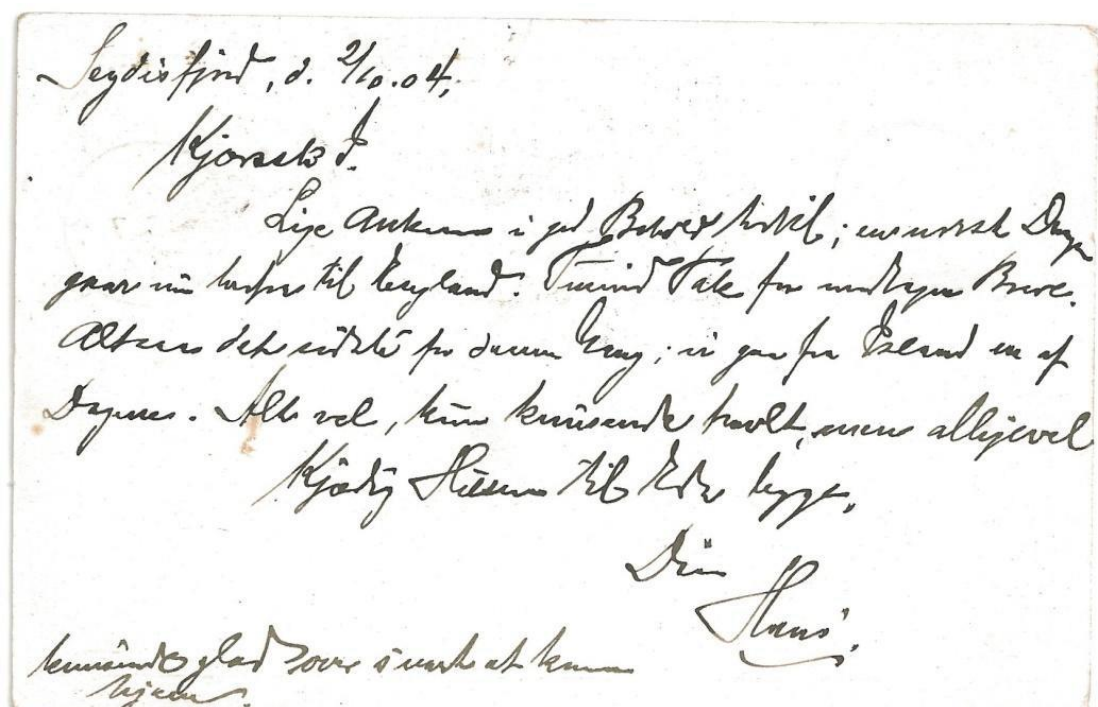 Seydisfjord, d. 2/10.04,
Kjæreste J.
Lige Ankommen i god Behold hertil; en norsk Damper
gaar nu herfra til England. Tusind Tak for modtagne Breve.
Altsaa det sidste fra denne Gang; vi gaar fra Island en af
Dagene. Alt vel, kun knusende travlt, men alligevel
Kjærlig Hilsen til Eder begge.
Din
Hans.
knusende glad over snart at komme
hjem.